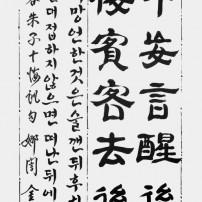 中妄言醒後
接賓客去後
망언한것은술깬뒤후
접하지않으면떠난뒤에
朱子十悔訓句 娜閏 金